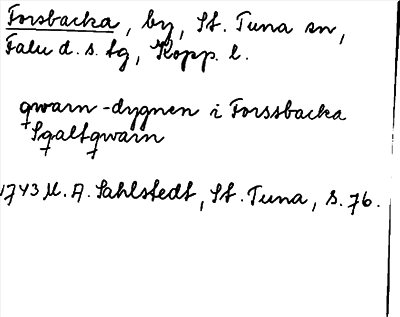 Forsbacka, by, St. Tuna sn,
Falu d. s. tg, Kopp. l.
qwarn-dygnen i Forssbacka
Sqaltqwarn
1743 M. A. Sahlstedt, St. Tuna, s. 76.